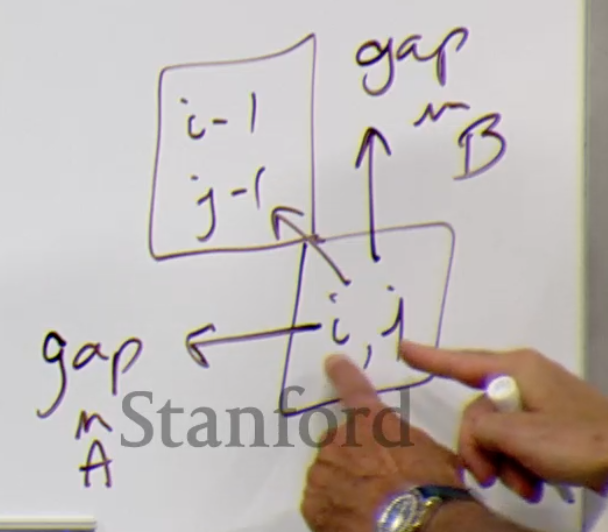 gap
in
B
i-1
j-1
i, j
gap
in
A
Stanford